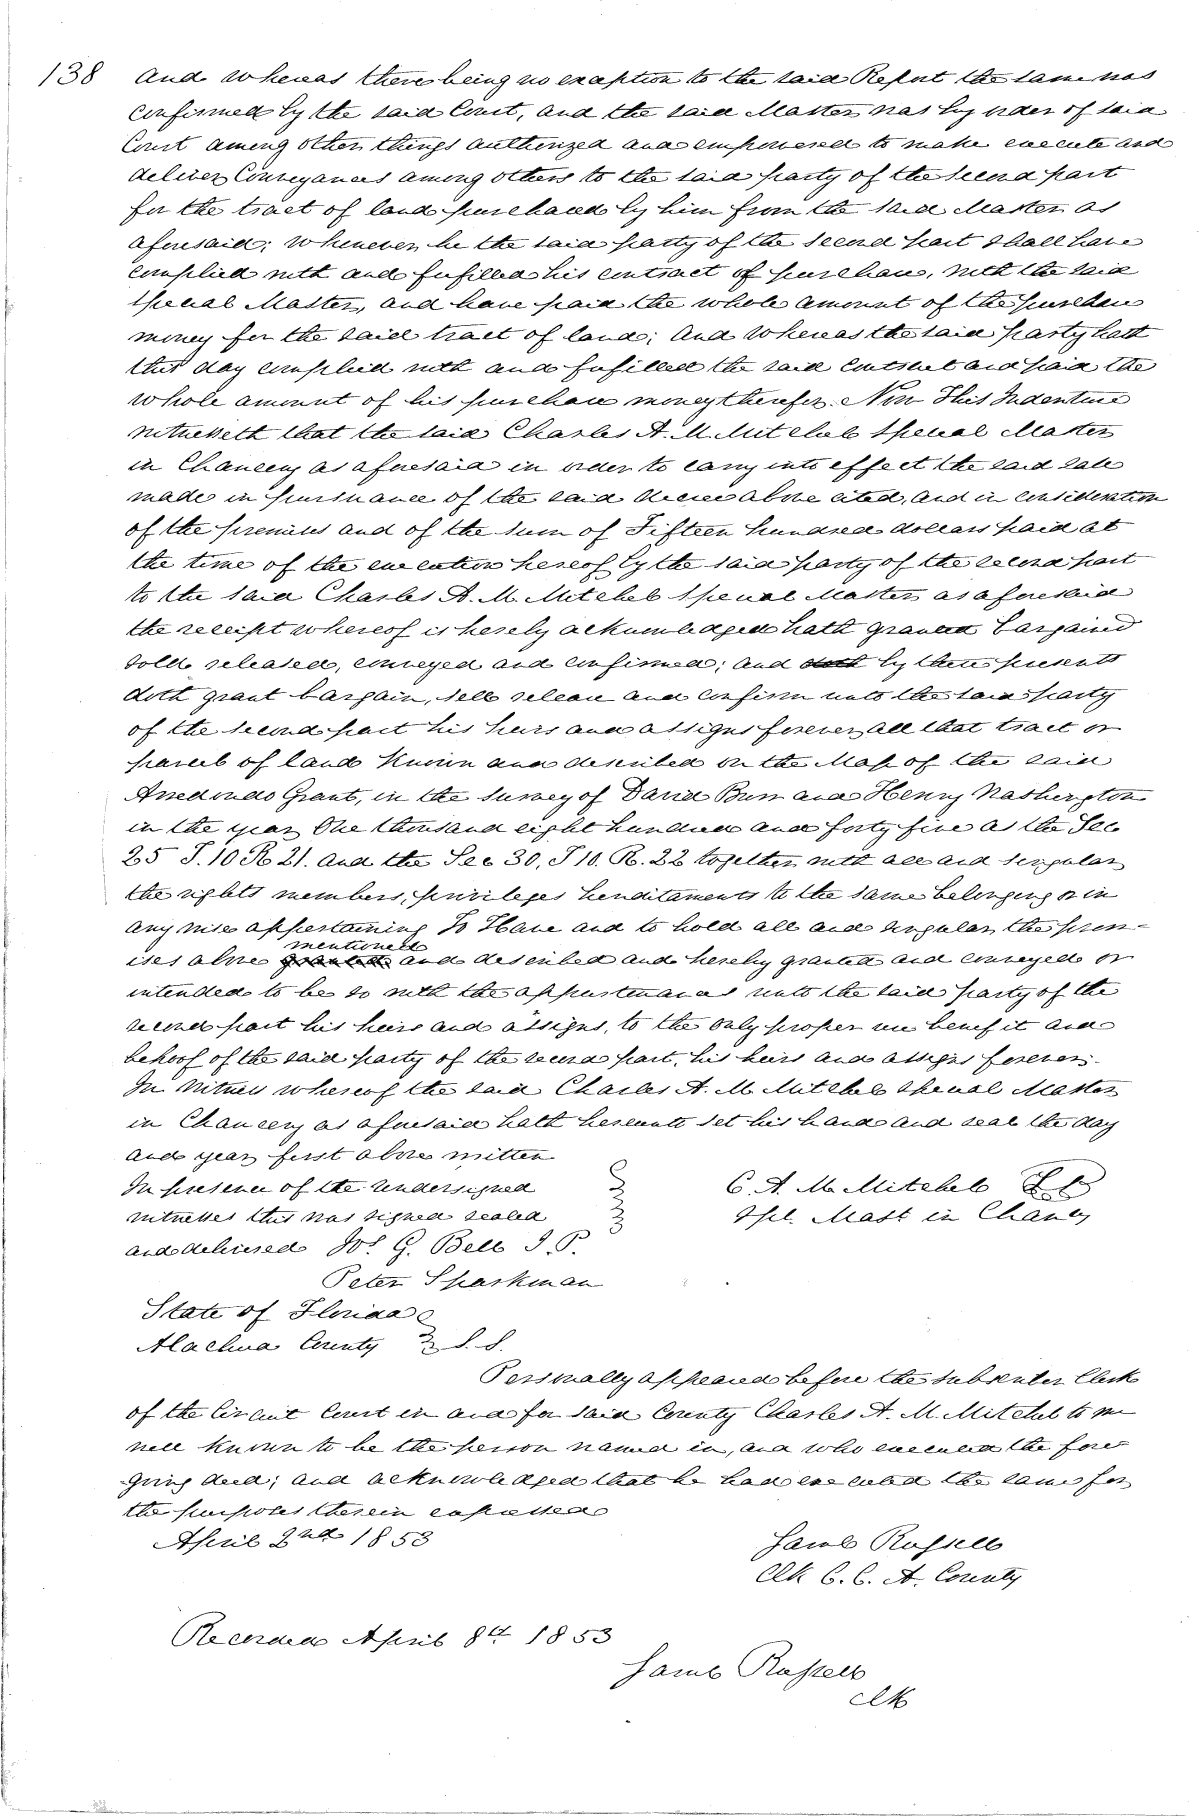 138
And whereas there being no exception to the said Report the same was
confirmed by the said Court, and the said Master was by order of said
Court among other things authorized and empowered to make execute and
deliver Conveyances among others to the said party of the second part
for the tract of land purchased by him from the said Master as
aforesaid; whenever he the said party of the second part shall have
complied with and fufilled his contract of purchase, with the said
Special Master, and have paid the whole amount of the purchase
money for the said tract of land; And Whereas the said party hath
this day complied with and fufilled the said contract and paid the
whole amount of his purchase money therefor. Now This Indenture
witnesseth that the said Charles A. M. Mitchel Special Master
in Chancery as aforesaid in order to carry into effect the said sale
made in pursuance of the said decree above cited, and in consideration
of the premises and of the sum of Fifteen hundred dollars paid at
the time of the execution hereof by the said party of the second part
to the said Charles A. M. Mitchel Special Master as aforesaid
the receipt whereof is hereby acknowledged hath granted bargained
sold released, conveyed and confirmed; and doth by these presents
doth grant bargain, sell release and confirm unto the said party
of the second part his heirs and assigns forever, all that tract or
parcel of land known and described on the Map of the said
Arredondo Grant, in the survey of David Burr and Henry Washington
in the year One thousand eight hundred and forty five as the Sec
25 T. 10 R 21. and the Sec 30, T 10. R. 22 together with all and singular
the rights members, privileges hereditaments to the same belonging or in
any wise appertaining To Have and to hold all and singular the prem-
mentioned
ises above granted and described and hereby granted and conveyed or
intended to be so with the appurtenances unto the said party of the
second part his heirs and assigns, to the only proper use benefit and
behoof of the said party of the second part, his heirs and assigns forever.
In Witness whereof the said Charles A. M. Mitchel Special Master
in Chancery as aforesaid hath hereunto set his hand and seal the day
and year first above written
In presence of the undersigned
C. A. M. Mitchel L S
witnesses this was signed sealed
Spl. Mast in Chancy
and delivered Jos. G. Bell J. P.
Peter Sparkman
State of Florida
Alachua County S. S.
Personally appeared before the subscriber Clerk
of the Circuit Court in and for said County Charles A. M. Mitchel to me
well known to be the person named in, and who executed the fore
going deed; and acknowledged that he had executed the same for
the purposes therein expressed
April 2nd 1853
Jacob Russell
Clk C. C. A. County
Recorded April 8th 1853
Jacob Russell
Clk